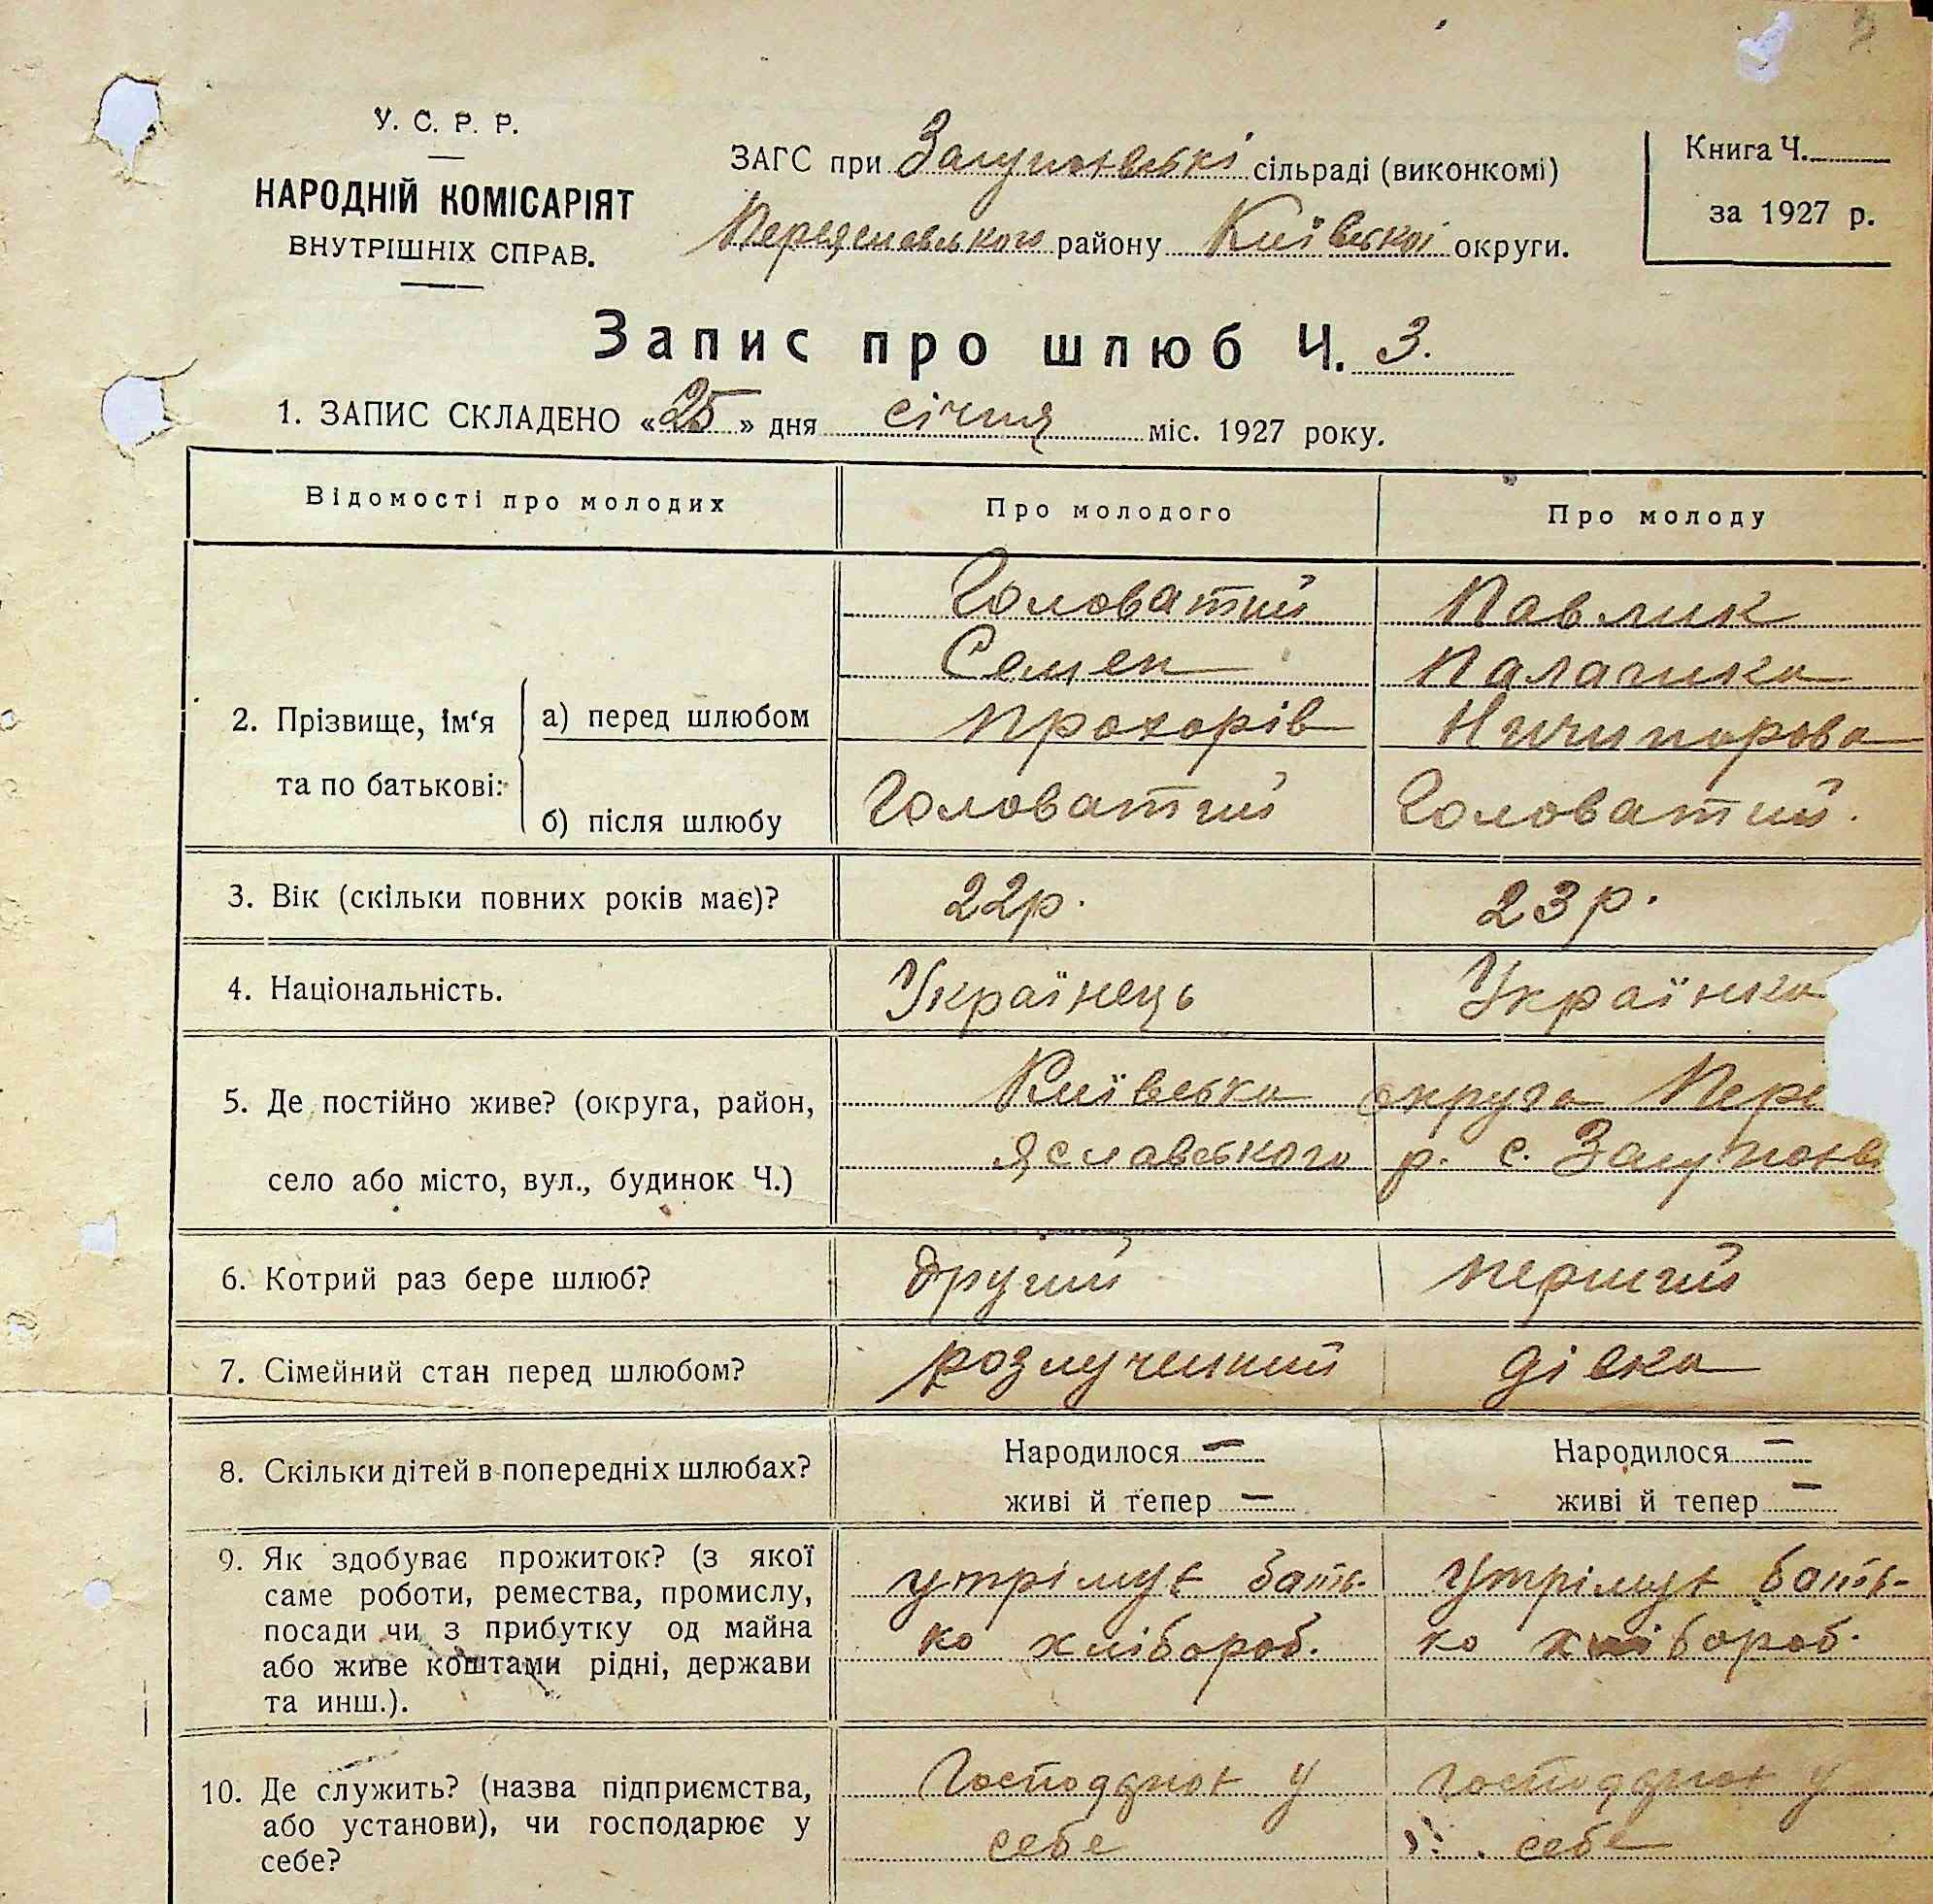 У. С. Р. Р.
НАРОДНІЙ КОМІСАРІЯТ
ВНУТРІШНІХ СПРАВ.
ЗАГС при сільраді (виконкомі)
Переяславського району Київської округи.
Книга Ч.
за 1927 р.
Запис про шлюб Ч. 3.
1. ЗАПИС СКЛАДЕНО «25» дня січня міс. 1927 року.
Відомості про молодих
Про молодого
Про молоду
2. Прізвище, ім‘я та по батькові:
а) перед шлюбом
Головатий
Семен
Прохорів
Павлик
Палагика
Ничипорова
б) після шлюбу
Головатий
Головатий.
3. Вік (скільки повних років має)?
22р.
23р.
4. Національність.
Українець
Українка
5. Де постійно живе? (округа, район,
село або місто, вул., будинок Ч.)
Київська округа Пере
яславського р. с.
6. Котрий раз бере шлюб?
другий
перший
7. Сімейний стан перед шлюбом?
розлучений
дівка
8. Скільки дітей в попередніх шлюбах?
Народилося —
живі й тепер —
Народилося —
живі й тепер —
9. Як здобуває прожиток? (з якої
саме роботи, ремества, промислу,
посади чи з прибутку од майна
або живе коштами рідні, держави
та инш.).
утрімує бать-
ко хлібороб.
утрімує бать-
ко хлібороб.
10. Де служить? (назва підприємства,
або установи), чи господарює у
себе?
у
себе
у
себе